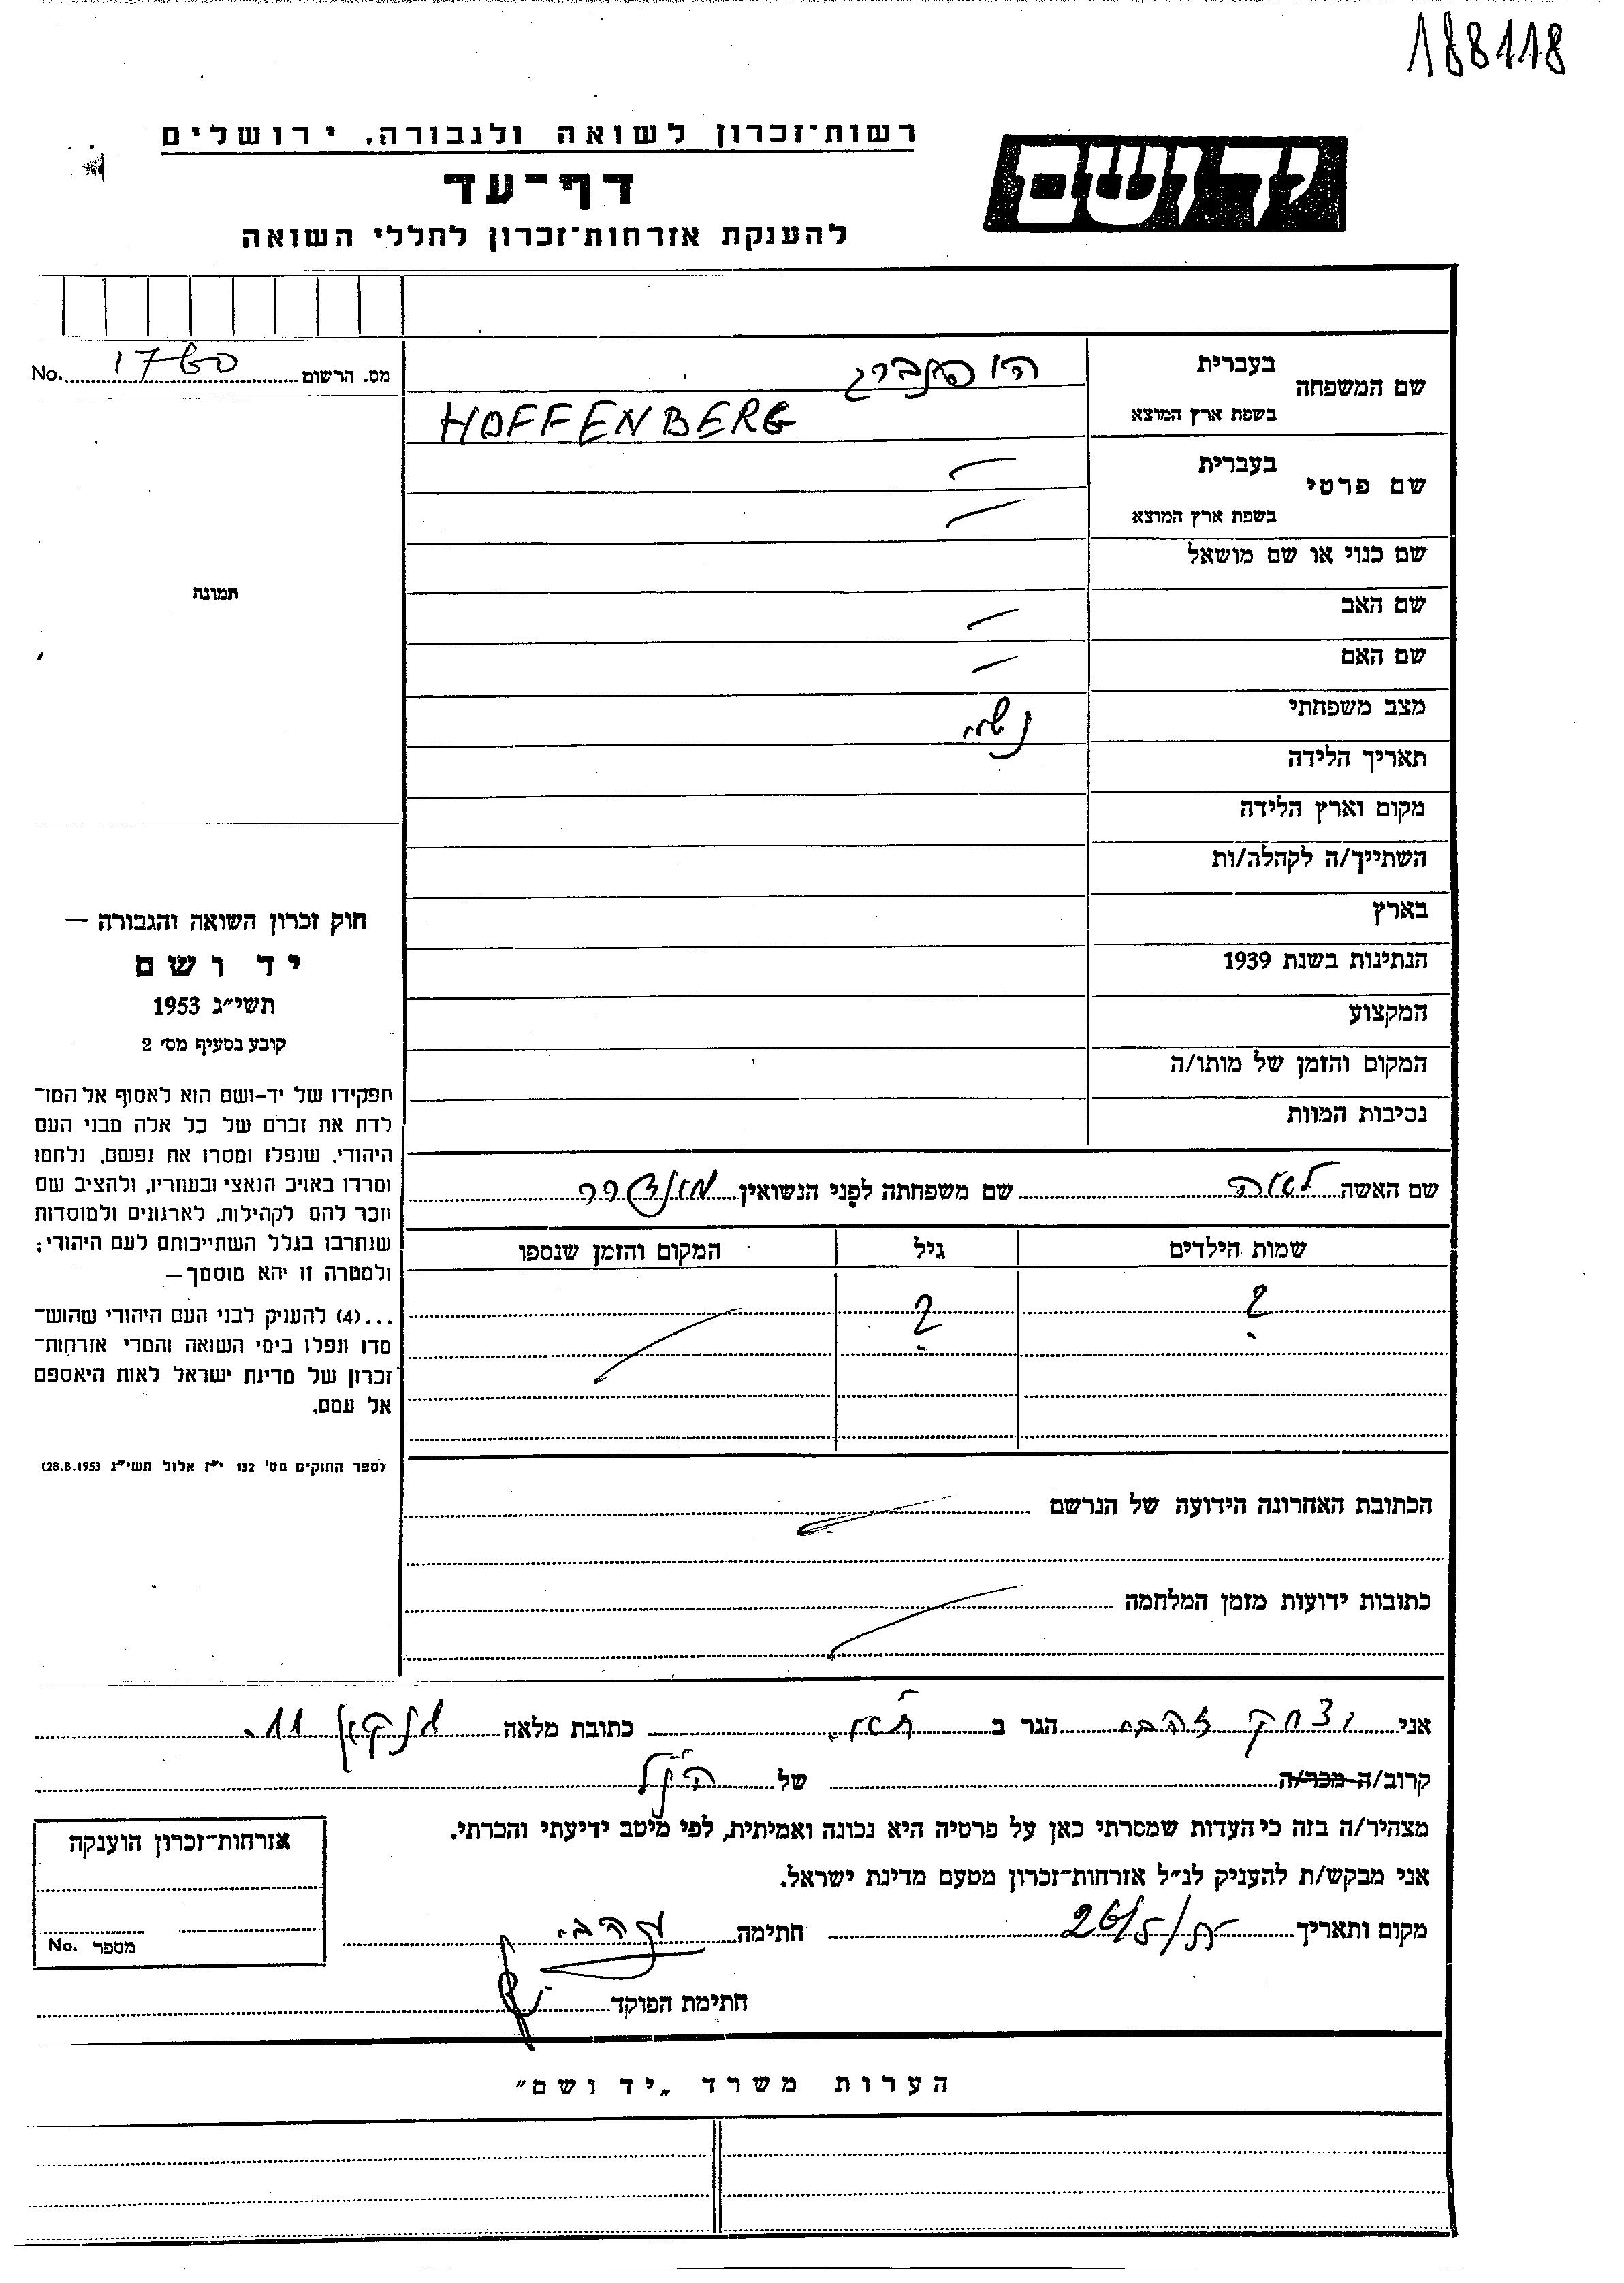 188118
יד ושם
רשות־זכרון לשואה ולגבורה, ירושלים
דף־עד
להענקת אזרחות־זכרון לחללי השואה
מס. הרשום 1760 No.
שם המשפחה
בעברית הופנברג
בשפת ארץ המוצא HOFFENBERG
שם פרטי
בעברית —
בשפת ארץ המוצא —
שם כנוי או שם מושאל
שם האב —
שם האם —
מצב משפחתי נשוי
תאריך הלידה
מקום וארץ הלידה
השתייך/ה לקהלה/ות
בארץ
הנתינות בשנת 1939
המקצוע
המקום והזמן של מותו/ה
נסיבות המוות
תמונה
חוק זכרון השואה והגבורה —
יד ושם
תשי״ג 1953
קובע בסעיף מס׳ 2
תפקידו של יד-ושם הוא לאסוף אל המו־
לדת את זכרם של כל אלה מבני העם
היהודי, שנפלו ומסרו את נפשם, נלחמו
ומרדו באויב הנאצי ובעוזריו, ולהציב שם
וזכר להם לקהילות, לארגונים ולמוסדות
שנחרבו בגלל השתייכותם לעם היהודי;
ולמטרה זו יהא מוסמך —
...(4) להעניק לבני העם היהודי שהוש־
מדו ונפלו בימי השואה והמרי אזרחות־
זכרון של מדינת ישראל לאות היאספם
אל עמם.
(ספר החוקים מס׳ 132 י״ז אלול תשי״ג 28.8.1953)
שם האשה לאה שם משפחתה לפני הנשואין
שמות הילדים גיל המקום והזמן שנספו
? ?
הכתובת האחרונה הידועה של הנרשם
כתובות ידועות מזמן המלחמה
אני יצחק זהבי הגר ב ת״א כתובת מלאה 11
קרוב/ה מכר/ה של הנ״ל
מצהיר/ה בזה כי העדות שמסרתי כאן על פרטיה היא נכונה ואמיתית, לפי מיטב ידיעתי והכרתי.
אני מבקש/ת להעניק לנ״ל אזרחות־זכרון מטעם מדינת ישראל.
מקום ותאריך 26/5 חתימה זהבי
חתימת הפוקד
אזרחות־זכרון הוענקה
מספר No.
הערות משרד „יד ושם״